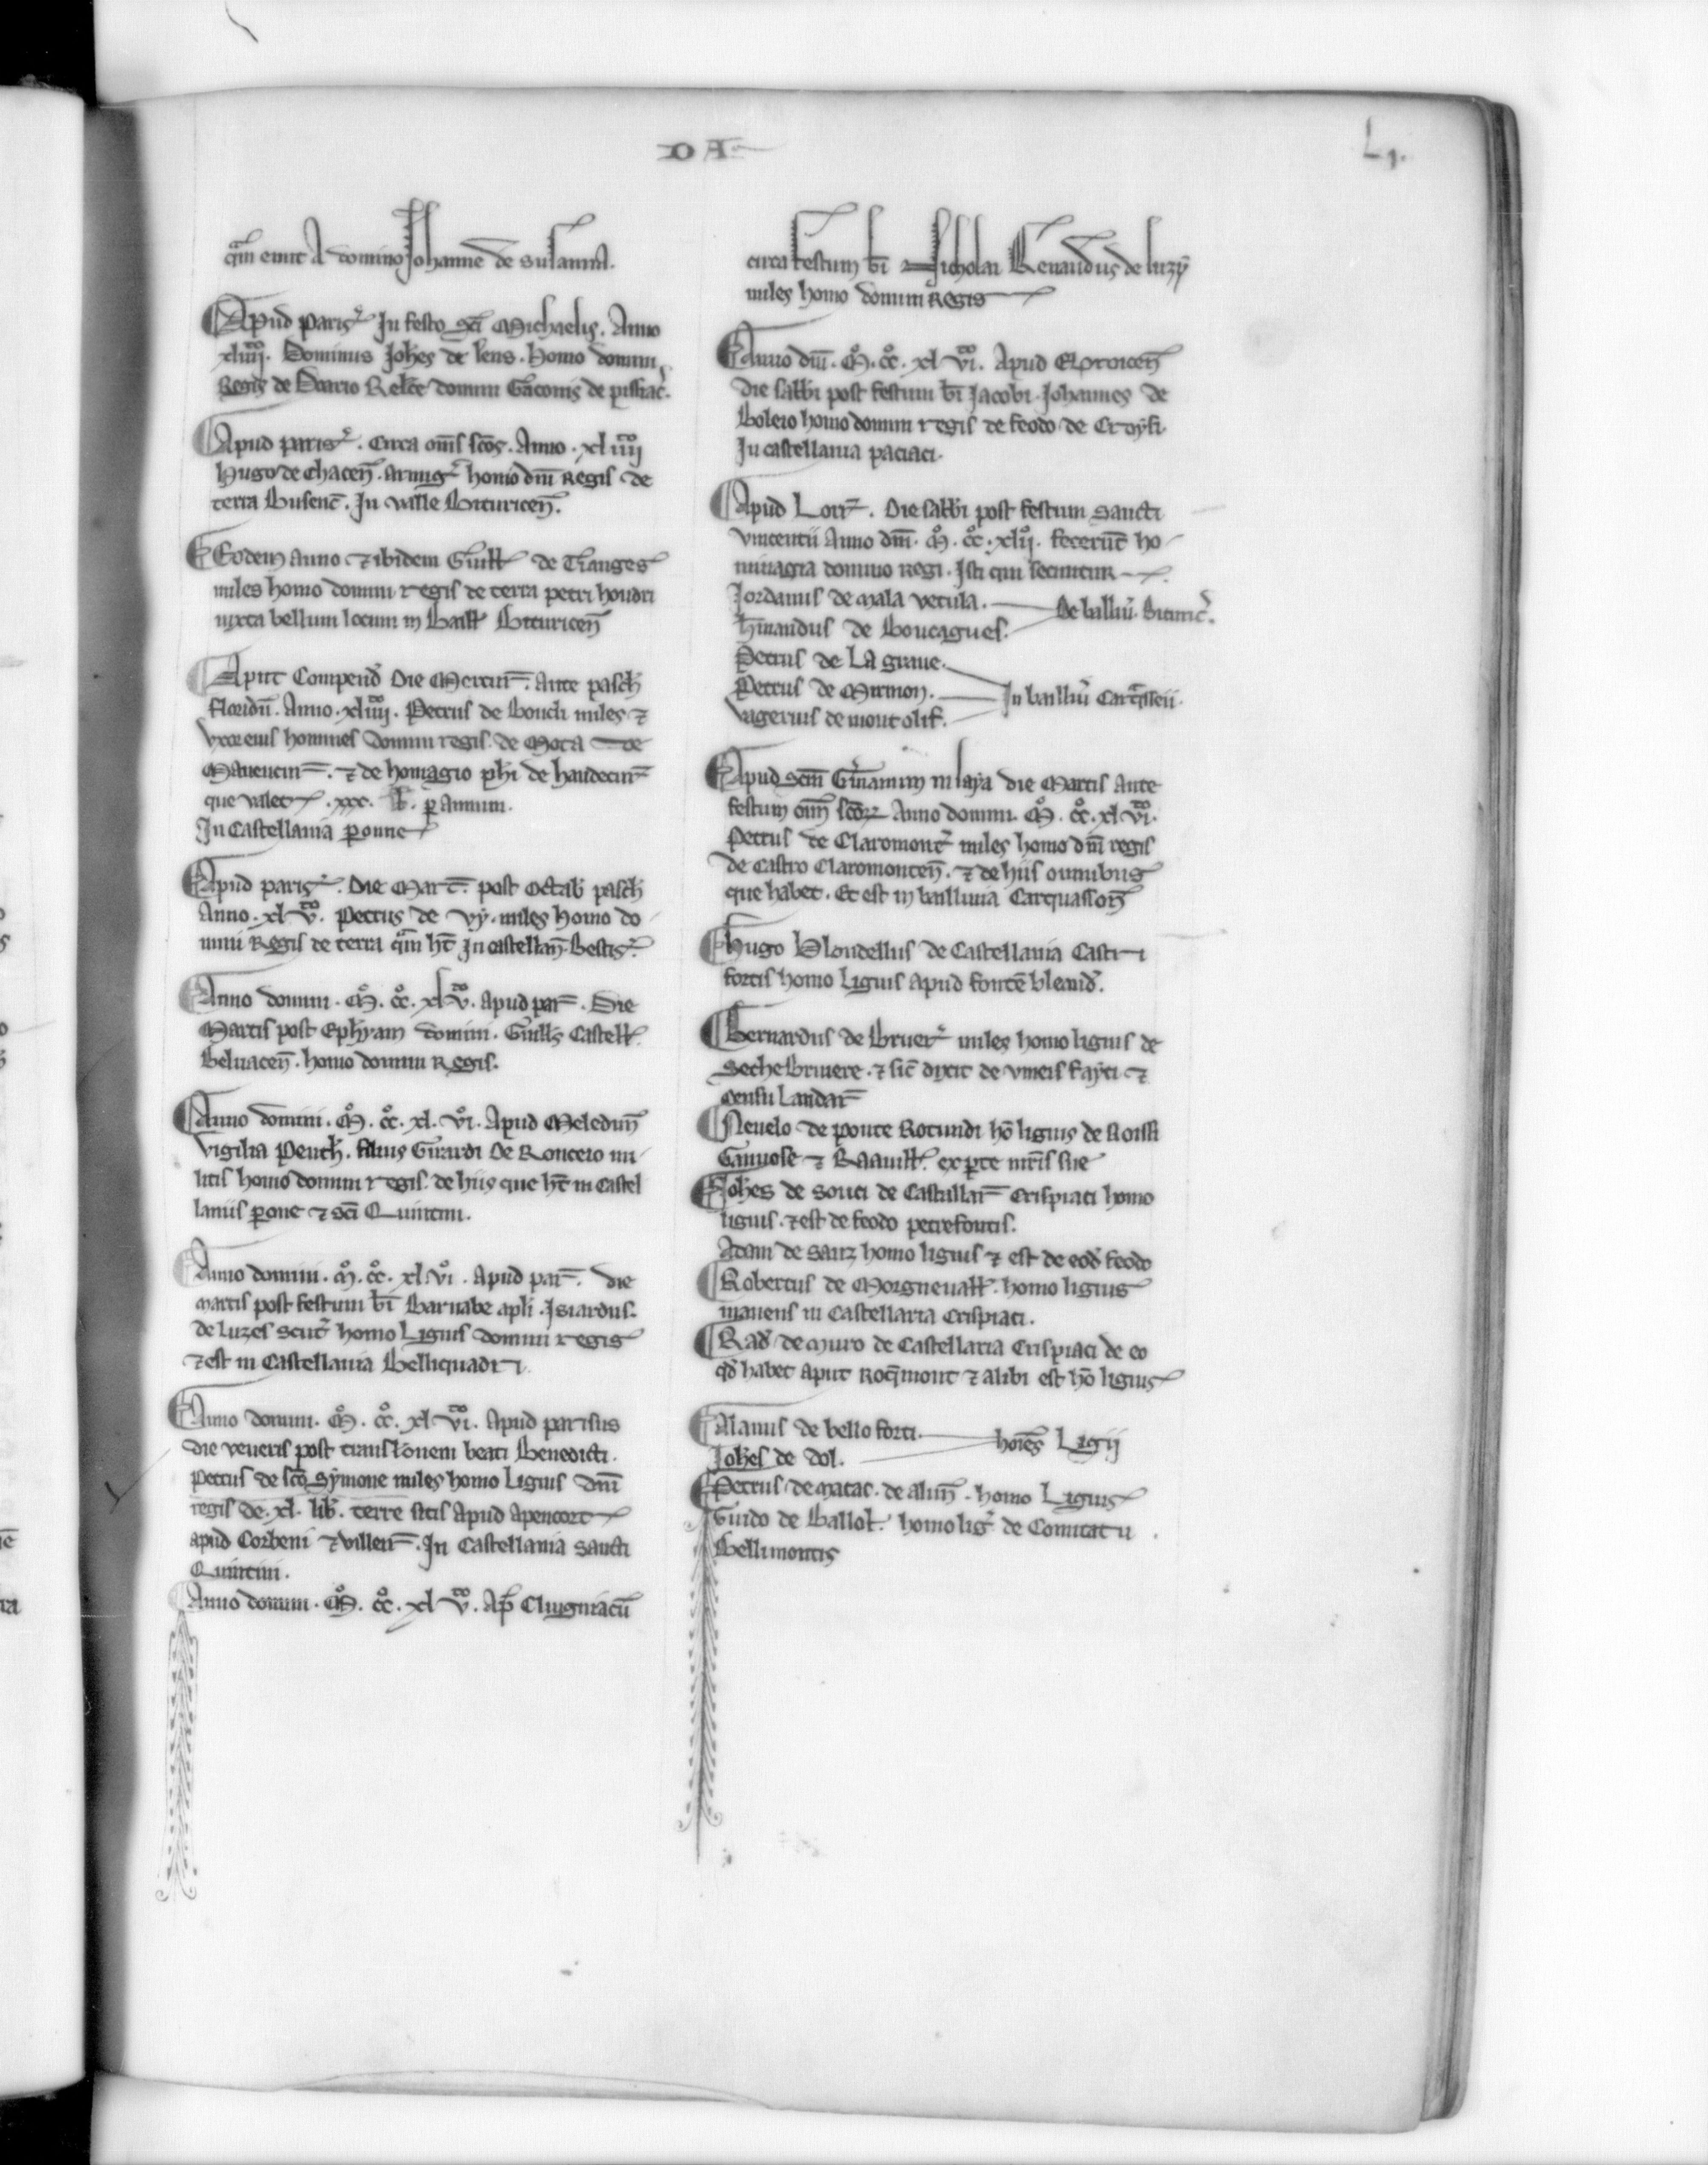 D A
L1.
q̄m emit A domino Johanne de susanna.
Apud paris᷑ In festo sc̄i Michaelis. Anno
xliiij. Dominus Joh̄es de lens. homo domini
Regis de Doario Relc̄e domini Gaconis de pissiac᷑.
Apud paris᷑. Circa om̄s sc̄os. Anno. xl iiij
Hugo de Chacen̄. armig᷑ homo dn̄i Regis de
terra Busenc̄. In valle Bituricen̄.
Eodem anno ⁊ ibidem Guill̄ de Tianges
miles homo domini regis de terra petri houdri
iuxta bellum locum in Baill̄ Bituricen̄
Aput Compend᷑ Die Mercur̄. Ante pasch̄
floridū. Anno. xliiij. Petrus de Bouch miles ⁊
vxor eius homines domini regis. de Mota de
Maneucin̄. ⁊ de homagio ph̄i de haudecin̄
que valet. xxx. lb̄. p̄ Annum.
In Castellania p̄onne
Apud paris᷑. Die Marc̄. post Octab̄ pasch̄
Anno. xl v. Petrus de vy. miles homo do
mini Regis de terra q̄m ht̄ In castellan̄. Bestis᷑.
Anno domini. M̊. cc̊. xl v. Apud par̄. Die
Martis post Eph̄yam domini. Guill̄s Castell̄.
Beluacen̄. homo domini Regis.
Anno domini. M̊. cc̊. xl. vi̊. Apud Meledun̄
vigilia Penth̄. filius Girardi de Ronceio mi
litis homo domini regis. de hiis que ht̄ in Castel
laniis p̄one ⁊ sc̄i Quintini.
Anno domini. M̊. cc̊. xl. vi̊. Apud par̄. die
martis post festum bi̅ Barnabe apl̄i. Isiardus.
de luzes scut᷑ homo Ligius domini regis
⁊ est in Castellania Belliquadri.
Anno domini. M̊. cc̊. xl vi. Apud parisius
die veneris post transl̄onem beati Benedicti.
petrus de sc̄o Symone miles homo Ligius dn̄i
regis de. xl. lib̄. terre sitis Apud Apencort
apud Corbeni ⁊ villen̄. In Castellania sancti
Quintini.
Anno domini. M̊. cc̊. xl v. Ap̄ Clugniacū
circa festum bi̅ Nicholai Renaudus de luzy
miles homo domini Regis
Anno dn̄i. M̊. cc̊. xl vi. Apud Ebroicen̄
Die sabb̄i post festum bi̅ Jacobi. Johannes de
Boleio homo domini regis de feodo de Croysi.
In castellania paciaci.
Apud Lorr᷑. Die sabb̄i post festum sancti
vincentii Anno dn̄i. M̊. cc̊. xlij̊. fecerūt ho
minagia domino Regi. Isti qui secuntur
Jordanus de mala vetula. De balliu᷑. Bituric᷑.
h̄mandus de Boucagues.
Petrus de La graue.
Petrus de Mirmon. In balliu᷑ Carc̄ssen̄.
vagerius de mont olif.
Apud scm̄ Gm̄anum in laya die Martis Ante
festum om̄ scōrum Anno domini. M̊. cc̊. xl vi.
Petrus de Claromont᷑ miles homo dn̄i regis
de Castro Claromonten̄. ⁊ de hiis omnibus
que habet. Et est in bailliuia Carquasson̄
Hugo Blondellus de Castellania Castri
fortis homo Ligius apud fontē bleaud᷑.
Bernardus de Bruer᷑ miles homo ligius de
Seche Bruiere. ⁊ sic̄ dixit de vineis fayti ⁊
censu Landar̄
Neuelo de ponte Rotundi hō ligius de Roissi
Ganiuose ⁊ Raauill̄. ex p̄te mr̄is sue
Joh̄es de souci de Castullan̄ Crispiaci homo
ligius. ⁊ est de feodo petrefontis.
Adam de sauz homo ligius ⁊ est de eod᷑ feodo
Robertus de Morgneuall̄. homo ligius
manens in Castellaria Crispiaci.
Rad᷑ de muro de Castellaria Crispiaci de eo
qd̄ habet aput roq̄mont ⁊ alibi est hō ligius
Alanus de bello forti. hoīes Ligij
Joh̄es de dol.
Petrus de matac. de alun̄. homo Ligius
Guido de Ballol᷑. homo lig᷑ de Comitatu
Bellimontis